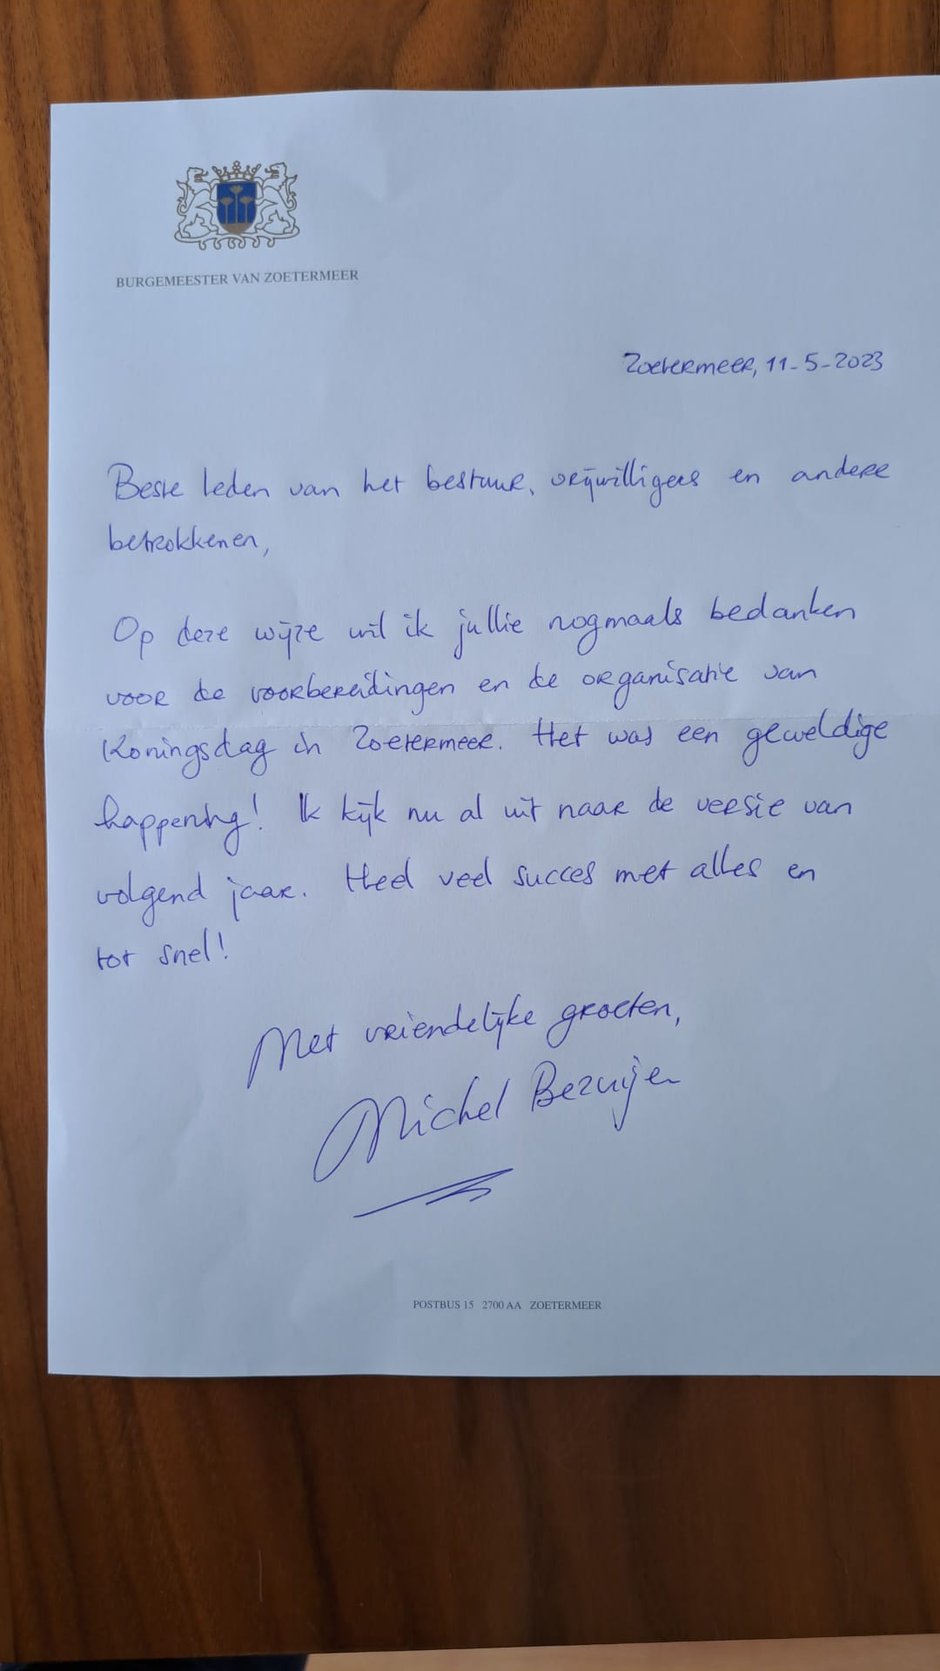 BURGEMEESTER VAN ZOETERMEER
Zoetermeer, 11-5-2023
Beste leden van het bestuur, vrijwilligers en andere
betrokkenen,
Op deze wijze wil ik jullie nogmaals bedanken
voor de voorbereidingen en de organisatie van
Koningsdag in Zoetermeer. Het was een geweldige
happening! Ik kijk nu al uit naar de versie van
volgend jaar. Heel veel succes met alles en
tot snel!
Met vriendelijke groeten,
Michel Bezuijen
POSTBUS 15 2700 AA ZOETERMEER